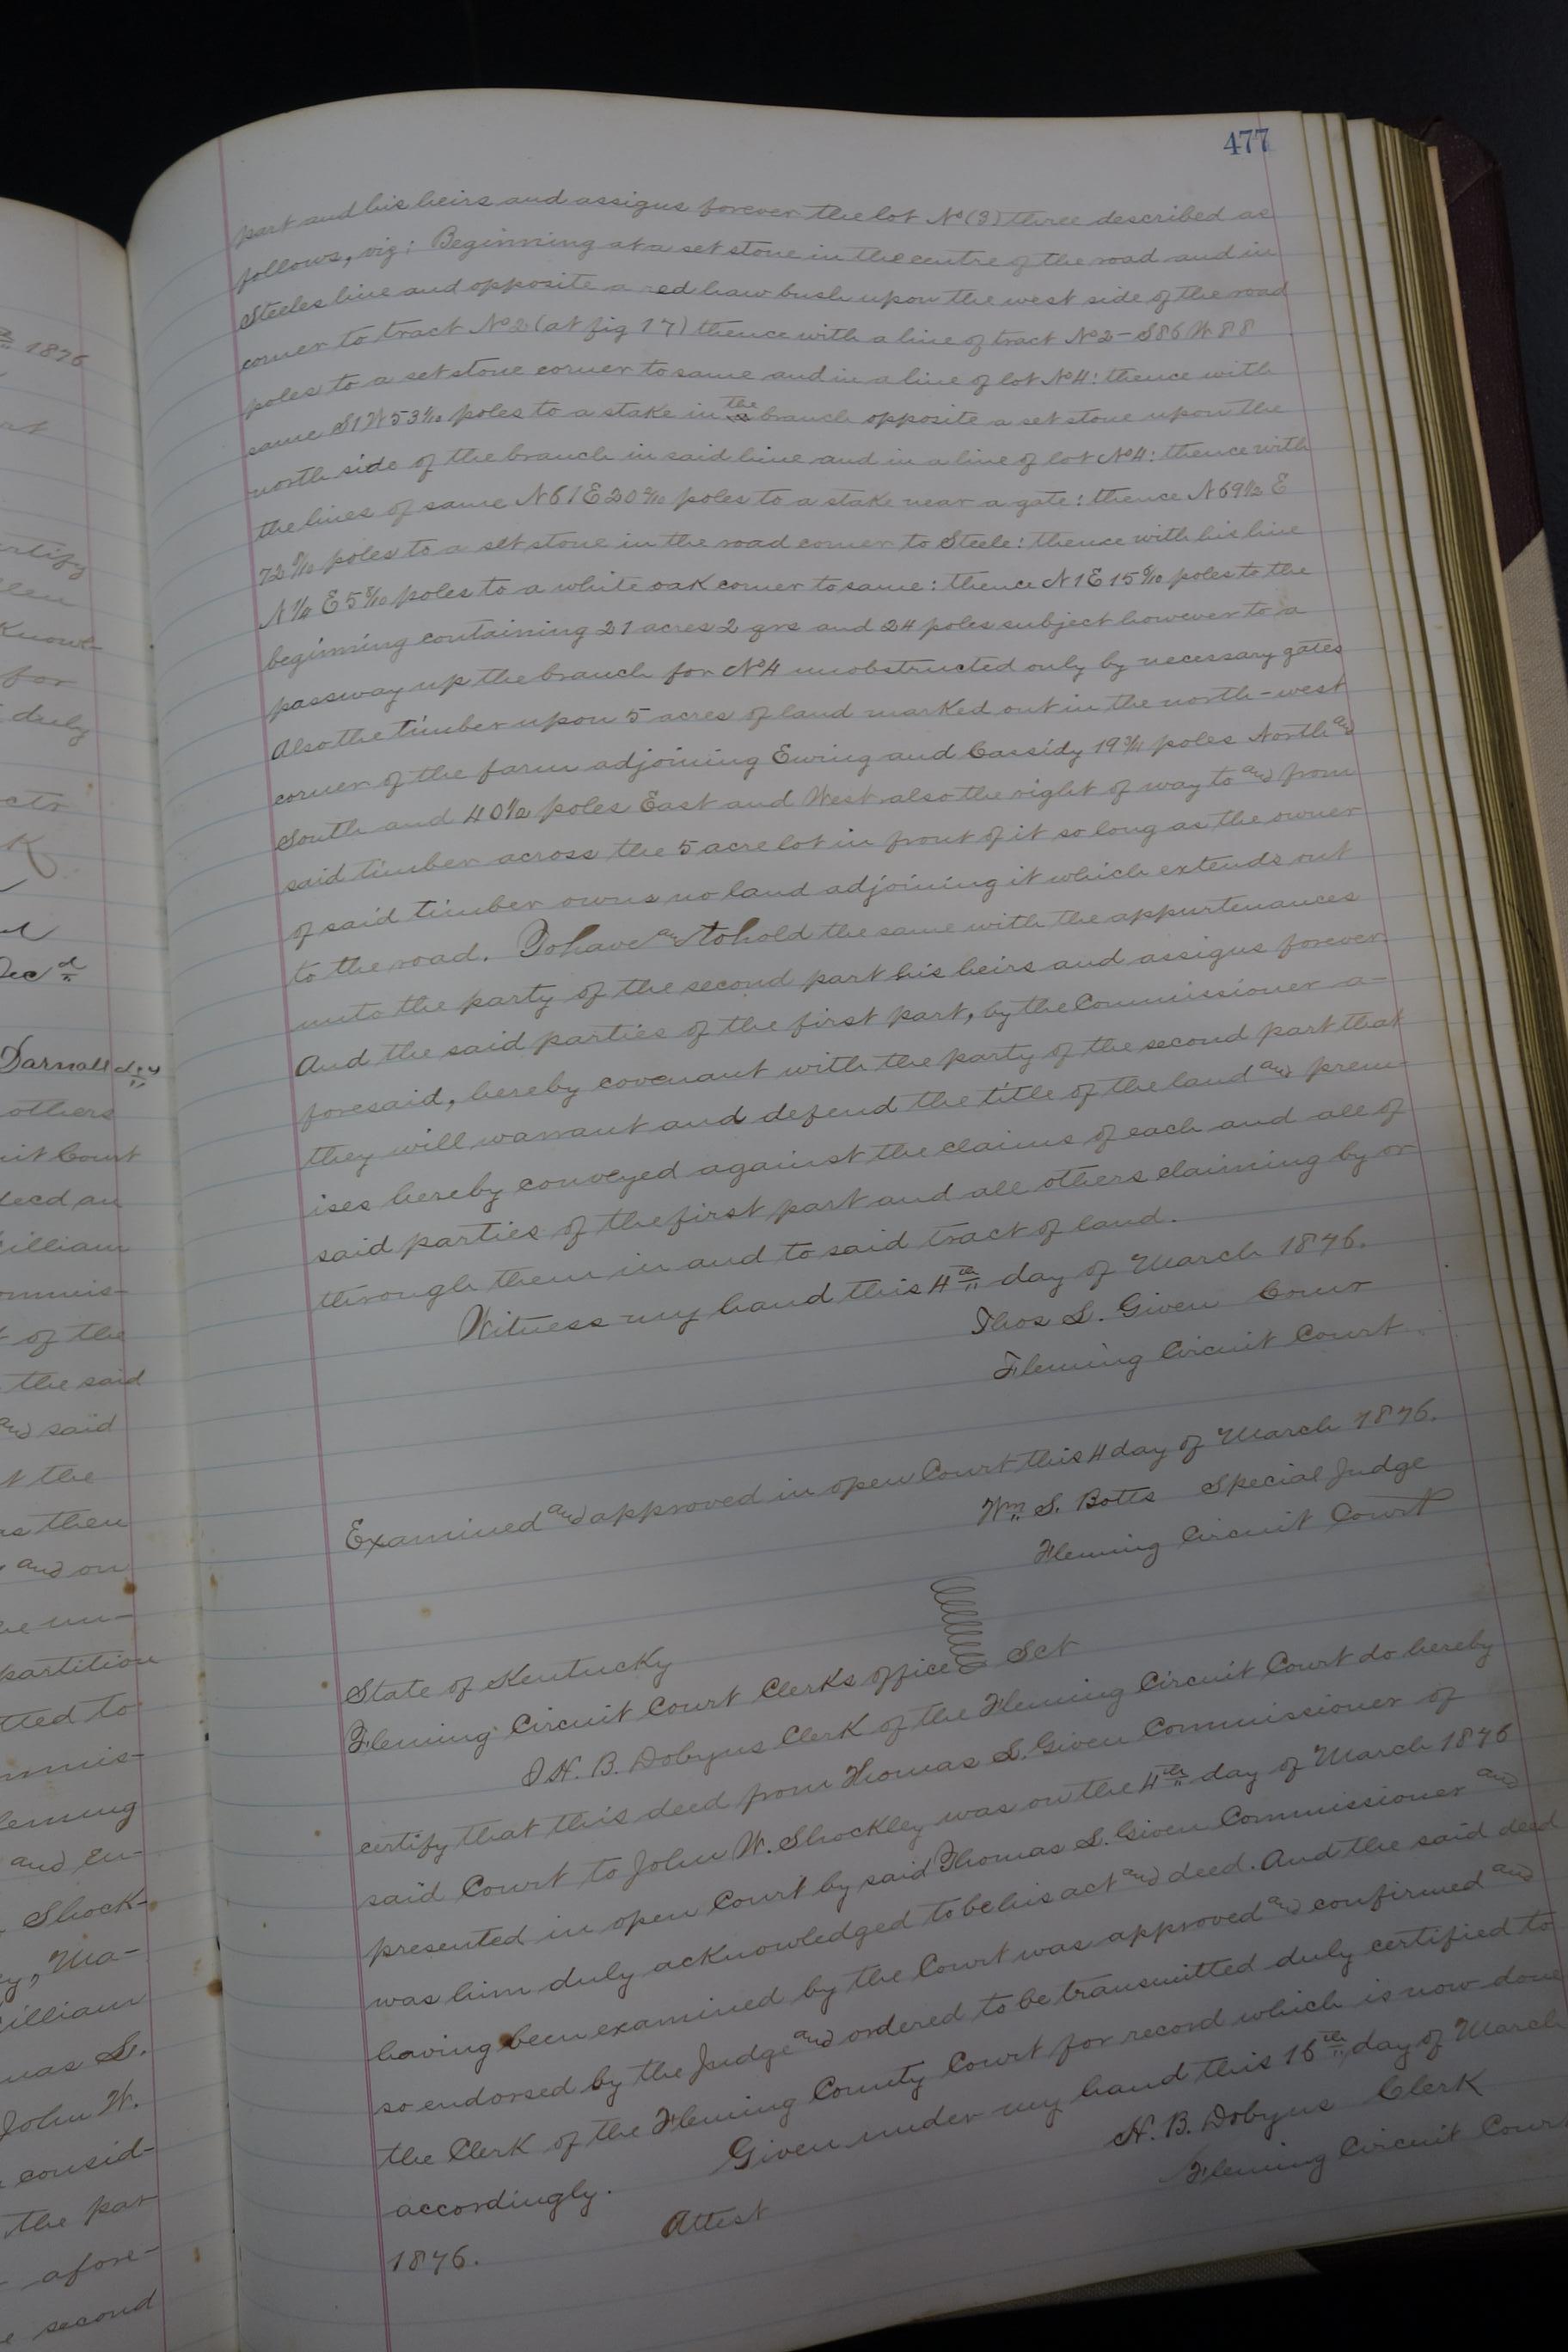 477
part and his heirs and assigns forever the lot No (3) three described as
follows, viz: Beginning at a set stone in the centre of the road and in
Steeles line and opposite a red haw bush upon the west side of the road
corner to tract No 2 (at fig 17) thence with a line of tract No 2 - S 86 W 88
poles to a set stone corner to same and in a line of lot No 4: thence with
same S 1 W 53 poles to a stake in the branch opposite a set stone upon the
north side of the branch in said line and in a line of lot No 4: thence with
the lines of same N 61 E 20 poles to a stake near a gate: thence N 69 1/2 E
72 poles to a set stone in the road corner to Steele: thence with his line
N E 5 poles to a white oak corner to same: thence N 1 E 15 poles to the
beginning containing 21 acres 2 qrs and 24 poles subject however to a
passway up the branch for No 4 unobstructed only by necessary gates
Also the timber upon 5 acres of land marked out in the north-west
corner of the farm adjoining Ewing and Cassidy 19 poles North and
South and 40 1/2 poles East and West also the right of way to and from
said timber across the 5 acre lot in front of it so long as the owner
of said timber owns no land adjoining it which extends out
to the road. To have and to hold the same with the appurtenances
unto the party of the second part his heirs and assigns forever
And the said parties of the first part, by the Commissioner a-
foresaid, hereby covenant with the party of the second part that
they will warrant and defend the title of the land and prem-
ises hereby conveyed against the claims of each and all of
said parties of the first part and all others claiming by or
through them in and to said tract of land.
Witness my hand this 4th day of March 1876.
Thos S. Given Comr
Fleming Circuit Court
Examined and approved in open Court this 4 day of March 1876.
Wm S. Botts Special Judge
Fleming Circuit Court
State of Kentucky
Fleming Circuit Court Clerks office Sct
I H. B. Dobyns Clerk of the Fleming Circuit Court do hereby
certify that this deed from Thomas S. Given Commissioner of
said Court to John W. Shockley was on the 4th day of March 1876
presented in open Court by said Thomas S. Given Commissioner and
was him duly acknowledged to be his act and deed. And the said deed
having been examined by the Court was approved and confirmed and
so endorsed by the Judge and ordered to be transmitted duly certified to
the Clerk of the Fleming County Court for record which is now done
accordingly. Given under my hand this 16th day of March
1876. Attest H. B. Dobyns Clerk
Fleming Circuit Cour